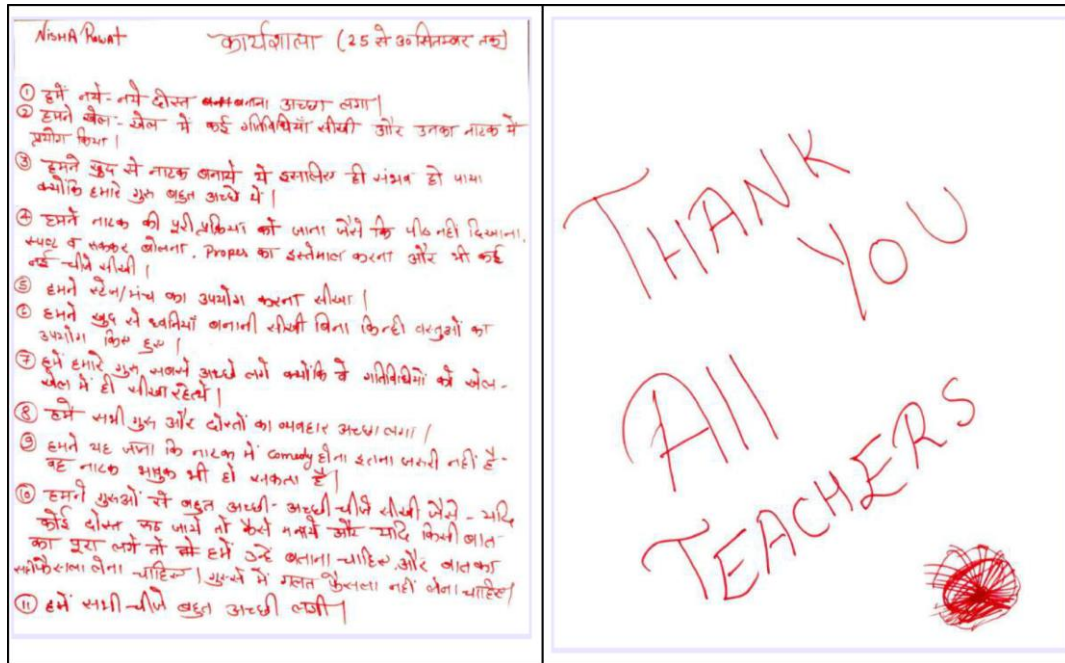 NISHA Rawat कार्यशाला (25 से 30 सितम्बर तक)
① हमें नये-नये दोस्त बनाना अच्छा लगा।
② हमने खेल-खेल में कई गतिविधियाँ सीखी और उनका नाटक में
प्रयोग किया।
③ हमने खुद से नाटक बनाये ये इसलिए ही संभव हो पाया
क्योंकि हमारे गुरु बहुत अच्छे थे।
④ हमने नाटक की पूरी प्रक्रिया को जाना जैसे कि पीठ नहीं दिखाना,
स्पष्ट व रुककर बोलना, Propes का इस्तेमाल करना और भी कई
नई चीजे सीखी।
⑤ हमने स्टेज/मंच का उपयोग करना सीखा।
⑥ हमने खुद से ध्वनियाँ बनानी सीखी बिना किन्ही वस्तुओं का
उपयोग किए हुए।
⑦ हमें हमारे गुरु सबसे अच्छे लगे क्योंकि वे गतिविधियों को खेल-
खेल में ही सीखा रहे थे।
⑧ हमें सभी गुरु और दोस्तों का व्यवहार अच्छा लगा।
⑨ हमने यह जाना कि नाटक में comedy होना इतना जरुरी नहीं है-
वह नाटक भावुक भी हो सकता है।
⑩ हमने गुरुओं से बहुत अच्छी-अच्छी चीजे सीखी जैसे - यदि
कोई दोस्त रूठ जाये तो कैसे मनाये और यदि किसी बात
का बुरा लगे तो हमें उन्हे बताना चाहिए और बात का
फैसला लेना चाहिए। गुस्से में गलत फैसला नहीं लेना चाहिए।
⑪ हमें सभी चीजे बहुत अच्छी लगी।
THANK
YOU
All
TEACHERS